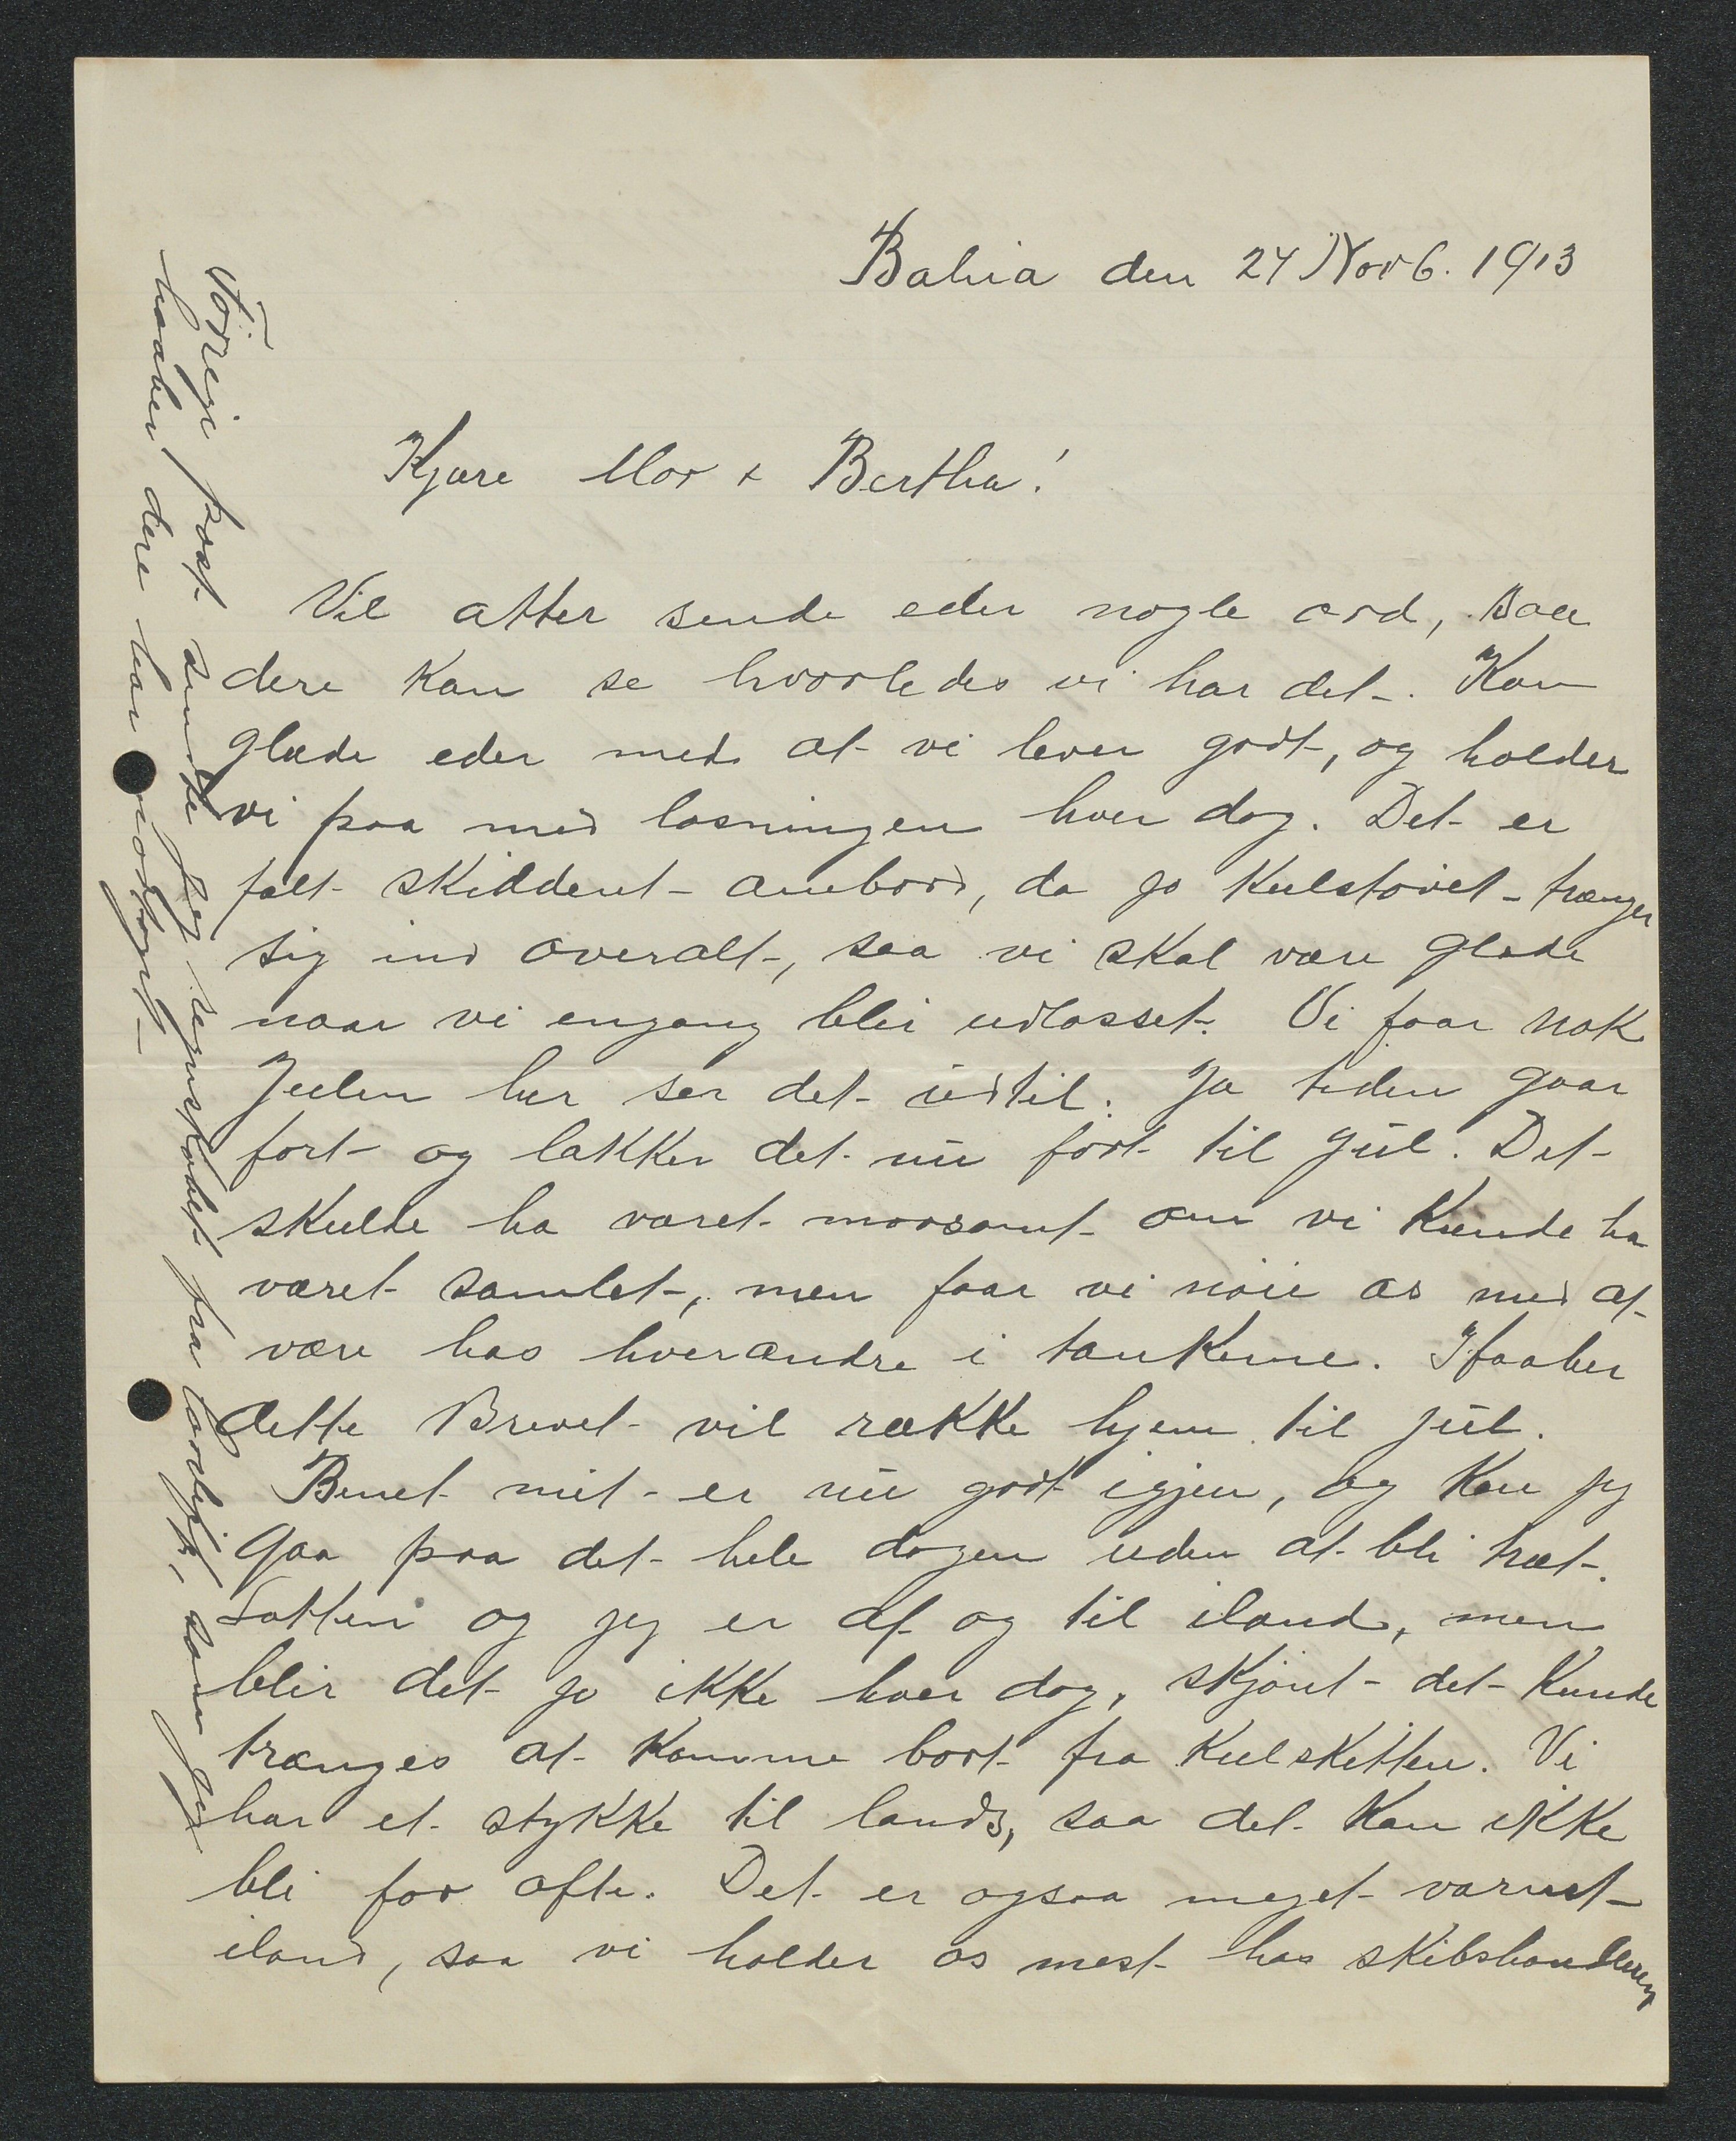 Bahia den 24 Novb. 1913
Kjære Mor & Bertha!
Vil atter sende eder nogle ord, saa
dere kan se hvorledes vi har det. Kan
glæde eder med at vi lever godt, og holder
vi paa med losningen hver dag. Det er
fælt skiddent ombord, da jo kulstøvet trænger
sig ind overalt, saa vi skal være glade
naar vi engang blir udlosset. Vi faar nok
Julen her ser det ud til. Ja tiden gaar
fort og lakker det nu fort til jul. Det
skulde ha været morsomt om vi kunde ha
været samlet, men faar vi nøie os med at
være hos hverandre i tankerne. Haaber
dette Brevet vil række hjem til jul.
Benet mit er nu godt igjen, og kan jeg
gaa paa det hele dagen uden at bli træt.
Lotten og jeg er af og til iland, men
blir det jo ikke hver dag, skjønt det kunde
trænges at komme bort fra kulskitten. Vi
har et stykke til lands, saa det kan ikke
bli for ofte. Det er ogsaa meget varmt
iland, saa vi holder os mest hos skibshandleren
Forrige post sendte jeg regnskabet fra som jeg
haaber dere har modtaget